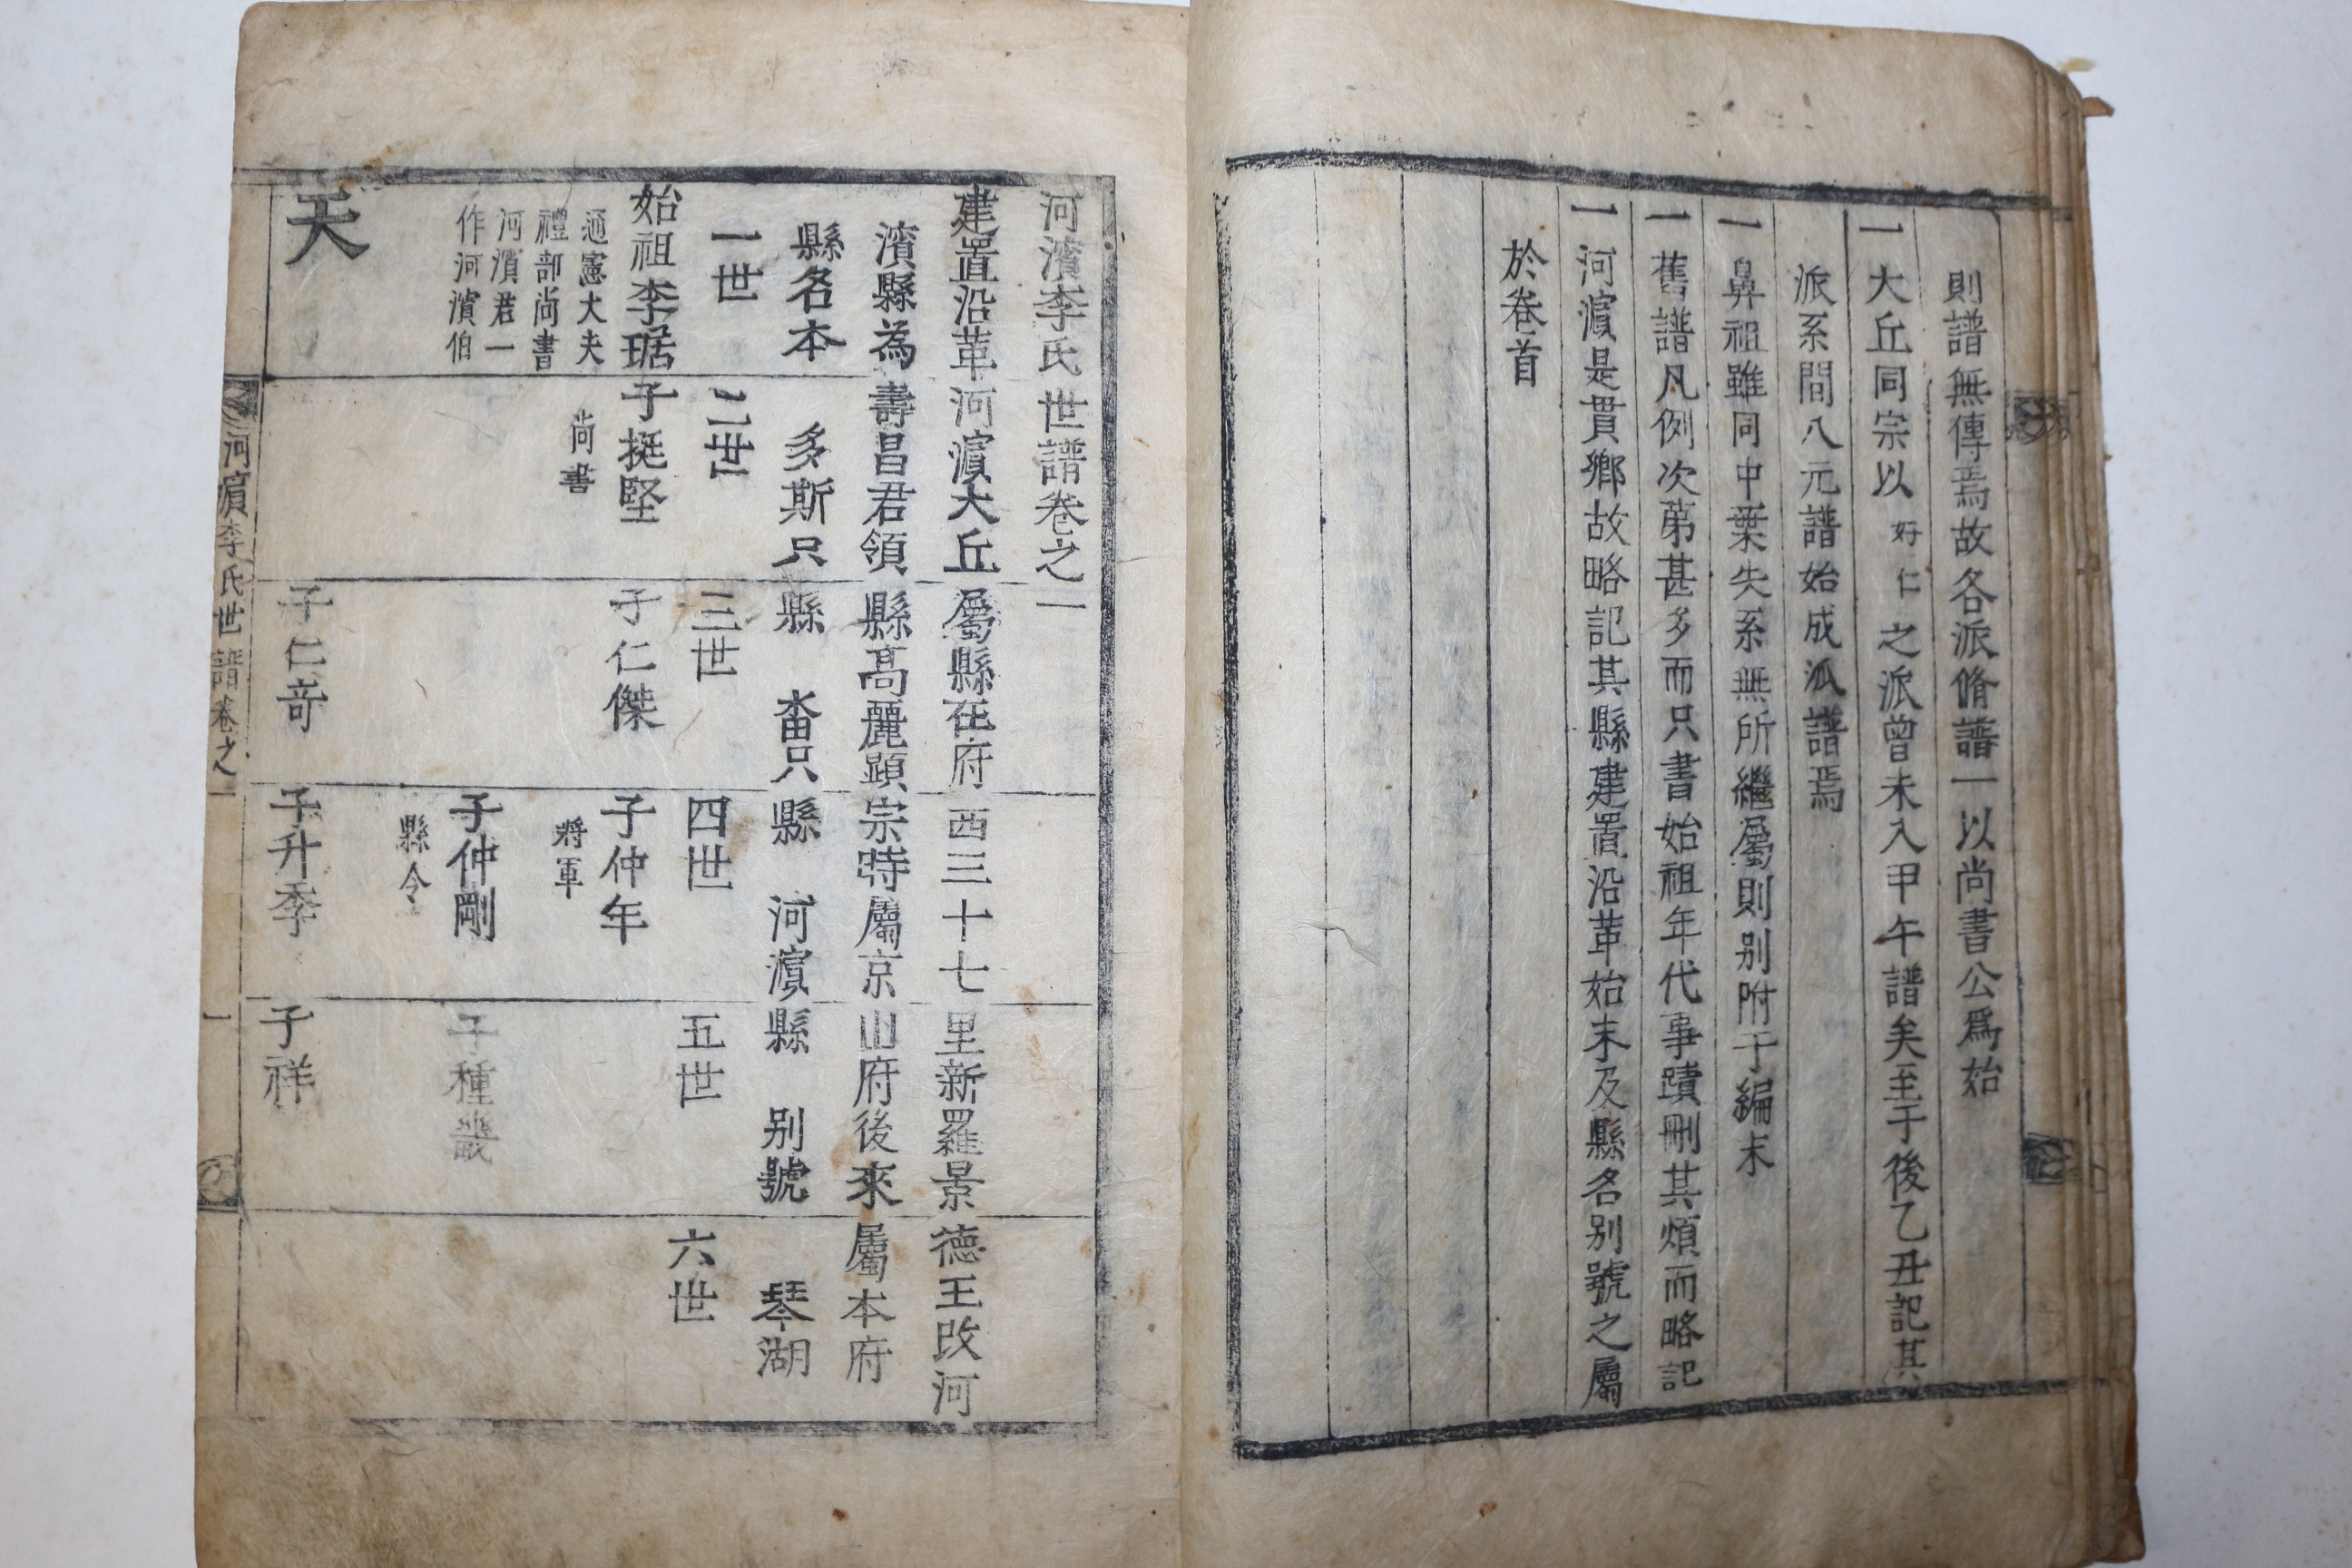 則譜無傳焉故各派脩譜一以尚書公爲始
一大丘同宗以好仁之派曾未入甲午譜矣至于後乙丑記其
派系間八元譜始成派譜焉
一鼻祖雖同中葉失系無所繼屬則别附于編末
一舊譜凡例次第甚多而只書始祖年代事蹟刪其煩而略記
一河濵是貫鄉故略記其縣建置沿革始末及縣名别號之屬
於卷首
河濱李氏世譜卷之一
建置沿革河濵大丘屬縣在府西三十七里新羅景德王改河
濱縣為壽昌君領縣高麗顕宗時屬京山府後來屬本府
縣名本 多斯只縣 畓只縣 河濵縣 别號 琴湖
一世 二世 三世 四世 五世 六世
始祖李琚 子挺堅 子仁傑 子仲年
通憲大夫 尚書 將軍
禮部尚書
河濵君一 子仲剛 子種畿
作河濵伯 縣令
天 子仁奇 子升季 子祥
河濵李氏世譜卷之一 一